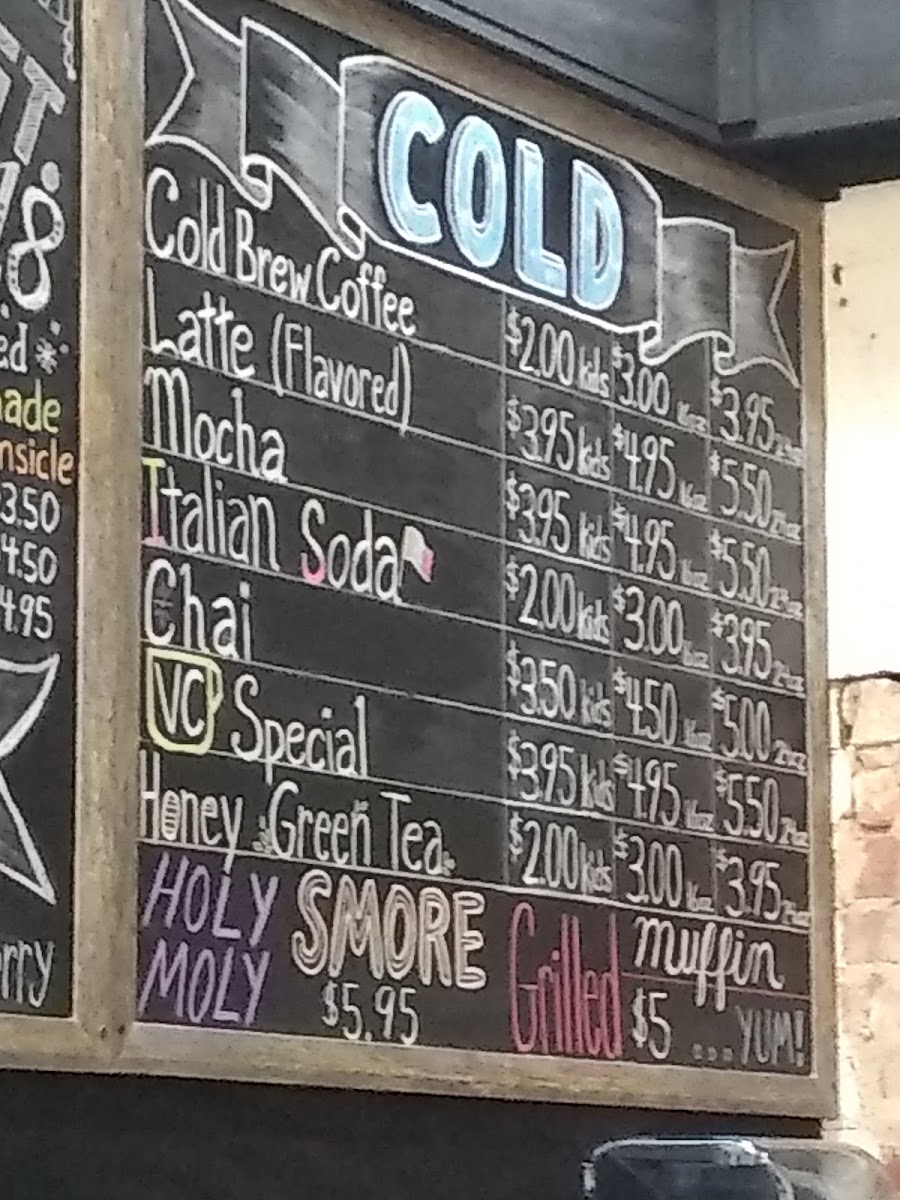 COLD
Cold Brew Coffee $2.00 kids $3.00 16oz $3.95 24oz
Latte (Flavored) $3.95 kids $4.95 16oz $5.50 24oz
Mocha $3.95 kids $4.95 16oz $5.50 24oz
Italian Soda $2.00 kids $3.00 16oz $3.95 24oz
Chai $3.50 kids $4.50 16oz $5.00 24oz
VC Special $3.95 kids $4.95 16oz $5.50 24oz
Honey Green Tea $2.00 kids $3.00 16oz $3.95 24oz
HOLY MOLY
SMORE
$5.95
Grilled muffin
$5 ...YUM!
8
ed
ade
nsicle
3.50
4.50
4.95
rry